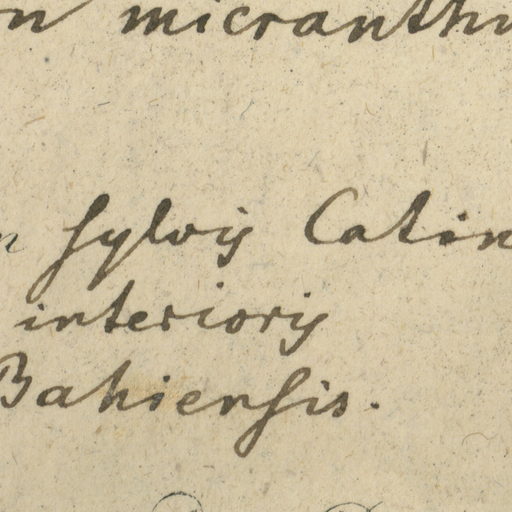 micranthu
sylvis Catin
interioris
Bahiensis.